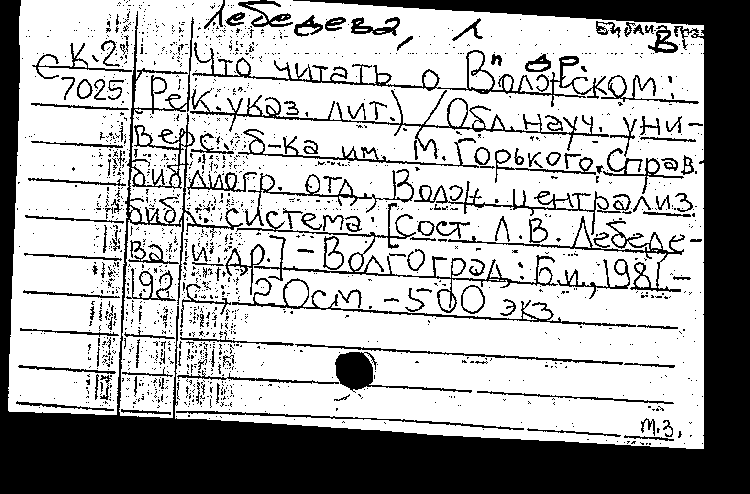 Лебедева, Л
В
и др.
С К.2
7025
Что читать о Волжском:
(Рек. указ. лит.) / Обл. науч. уни-
верс. б-ка им. М. Горького. Справ.-
библиогр. отд., Волж. централиз
библ. система; [Сост. Л.В. Лебеде-
ва и др.] - Волгоград,: Б.и., 1981. -
192 с; 20 см. - 500 экз.
т.з.